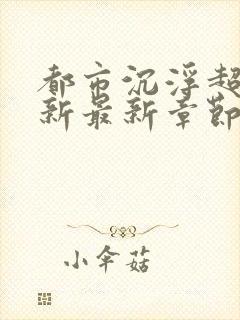 都市沉浮超
新最新章節
小伞菇